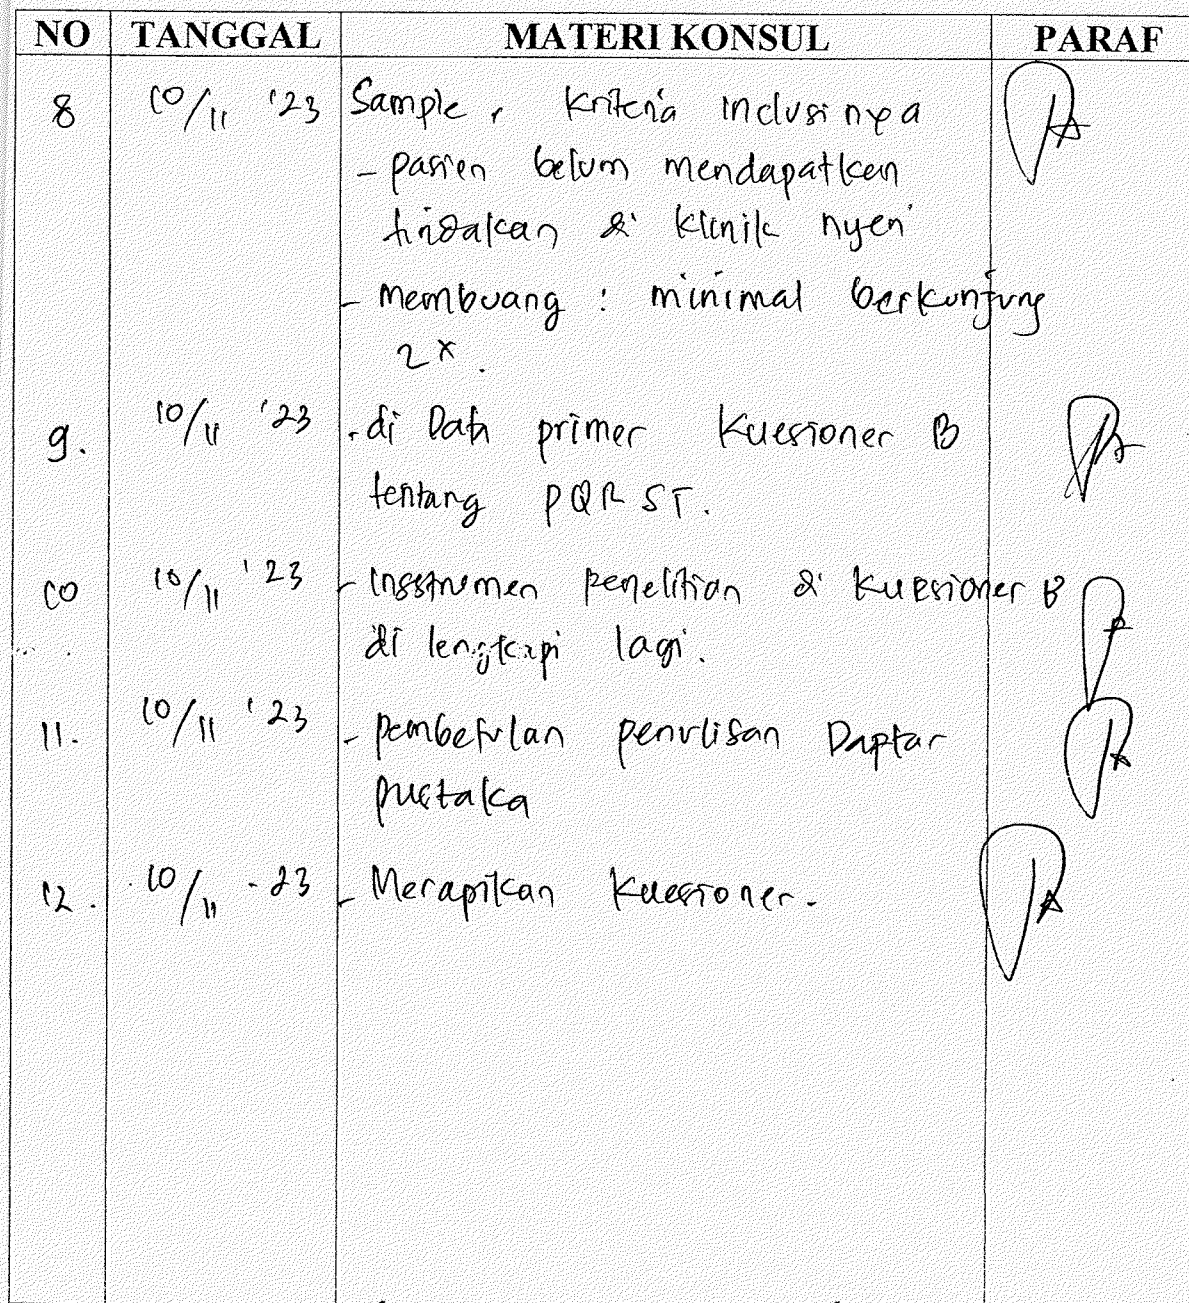 NO TANGGAL MATERI KONSUL PARAF
8 10/11 '23 Sample, kriteria inclusinya
- pasien belum mendapatkan
tindakan di klinik nyeri
- Membuang : minimal berkunjung
2x.
9. 10/11 '23 - di Data primer Kuesioner B
tentang PQRST.
10 10/11 '23 - Insstrumen penelitian di Kuesioner B
di lengkapi lagi.
11. 10/11 '23 - pembetulan penulisan Daptar
pustaka
12. 10/11 - 23 - Merapikan Kuesioner.